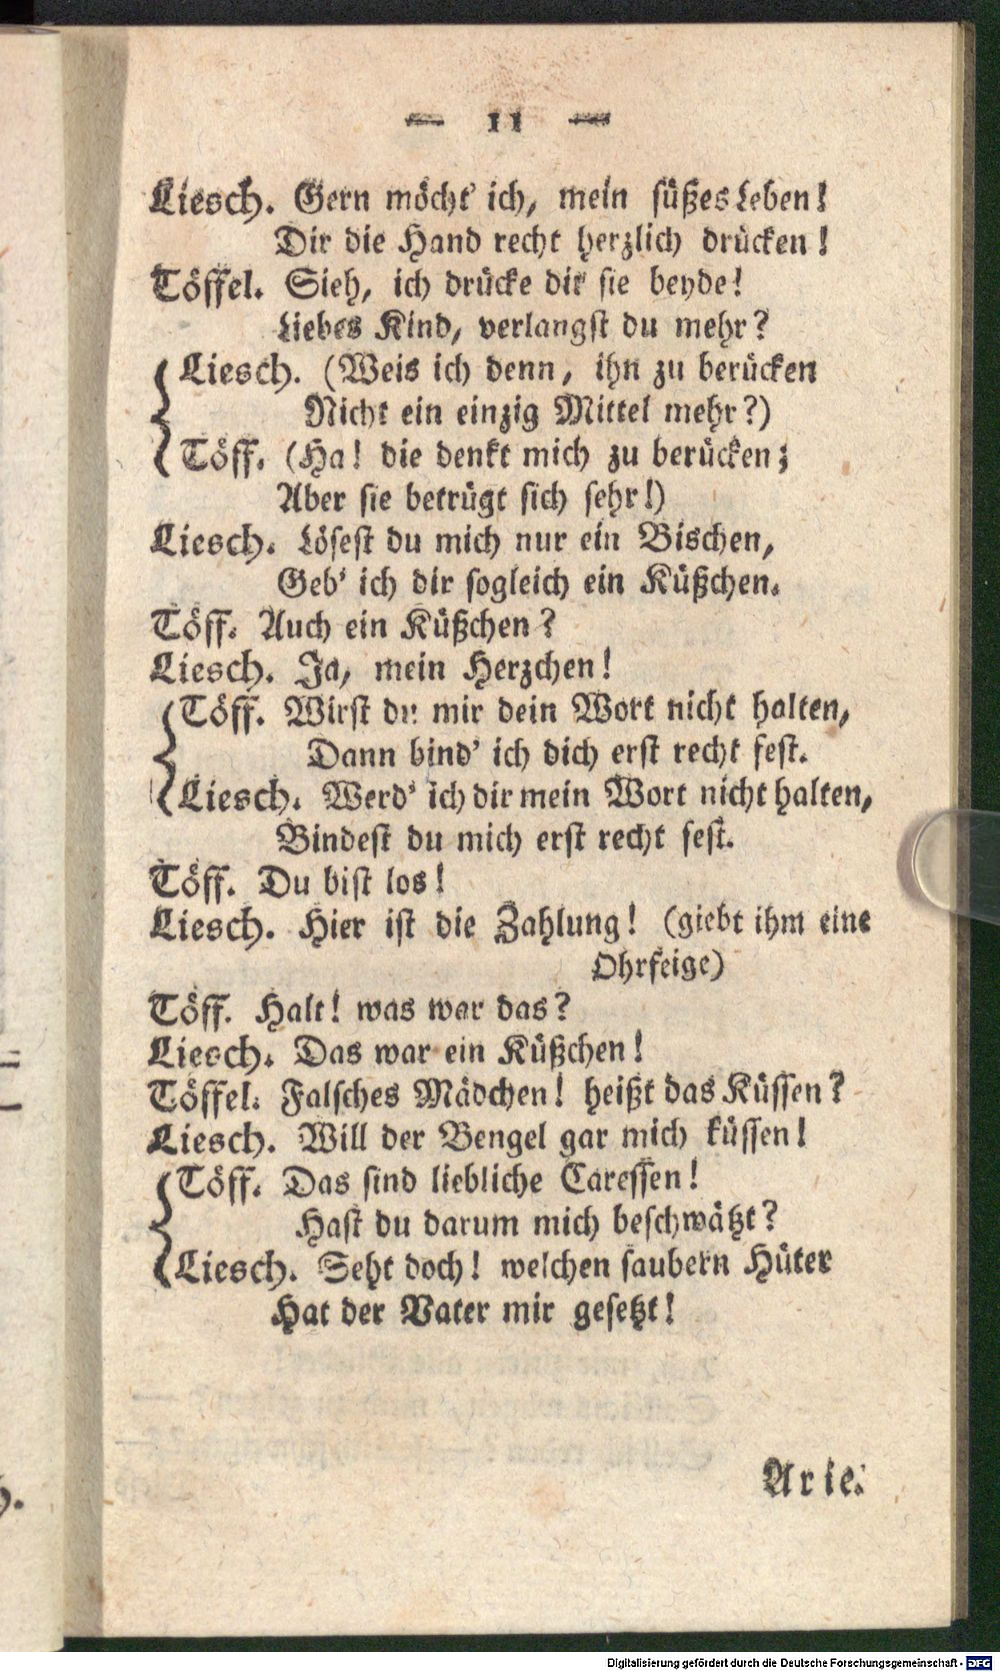 — 11 —
Liesch. Gern möcht' ich, mein süßes Leben!
Dir die Hand recht herzlich drücken!
Töffel. Sieh, ich drücke dir sie beyde!
Liebes Kind, verlangst du mehr?
Liesch. (Weis ich denn, ihn zu berücken
Nicht ein einzig Mittel mehr?)
Töff. (Ha! die denkt mich zu berücken;
Aber sie betrügt sich sehr!)
Liesch. Lösest du mich nur ein Bischen,
Geb' ich dir sogleich ein Küßchen.
Töff. Auch ein Küßchen?
Liesch. Ja, mein Herzchen!
Töff. Wirst du mir dein Wort nicht halten,
Dann bind' ich dich erst recht fest.
Liesch. Werd' ich dir mein Wort nicht halten,
Bindest du mich erst recht fest.
Töff. Du bist los!
Liesch. Hier ist die Zahlung! (giebt ihm eine
Ohrfeige)
Töff. Halt! was war das?
Liesch. Das war ein Küßchen!
Töffel. Falsches Mädchen! heißt das Küssen?
Liesch. Will der Bengel gar mich küssen!
Töff. Das sind liebliche Caressen!
Hast du darum mich beschwätzt?
Liesch. Seht doch! welchen saubern Hüter
Hat der Vater mir gesetzt!
Arie.
Digitalisierung gefördert durch die Deutsche Forschungsgemeinschaft - DFG